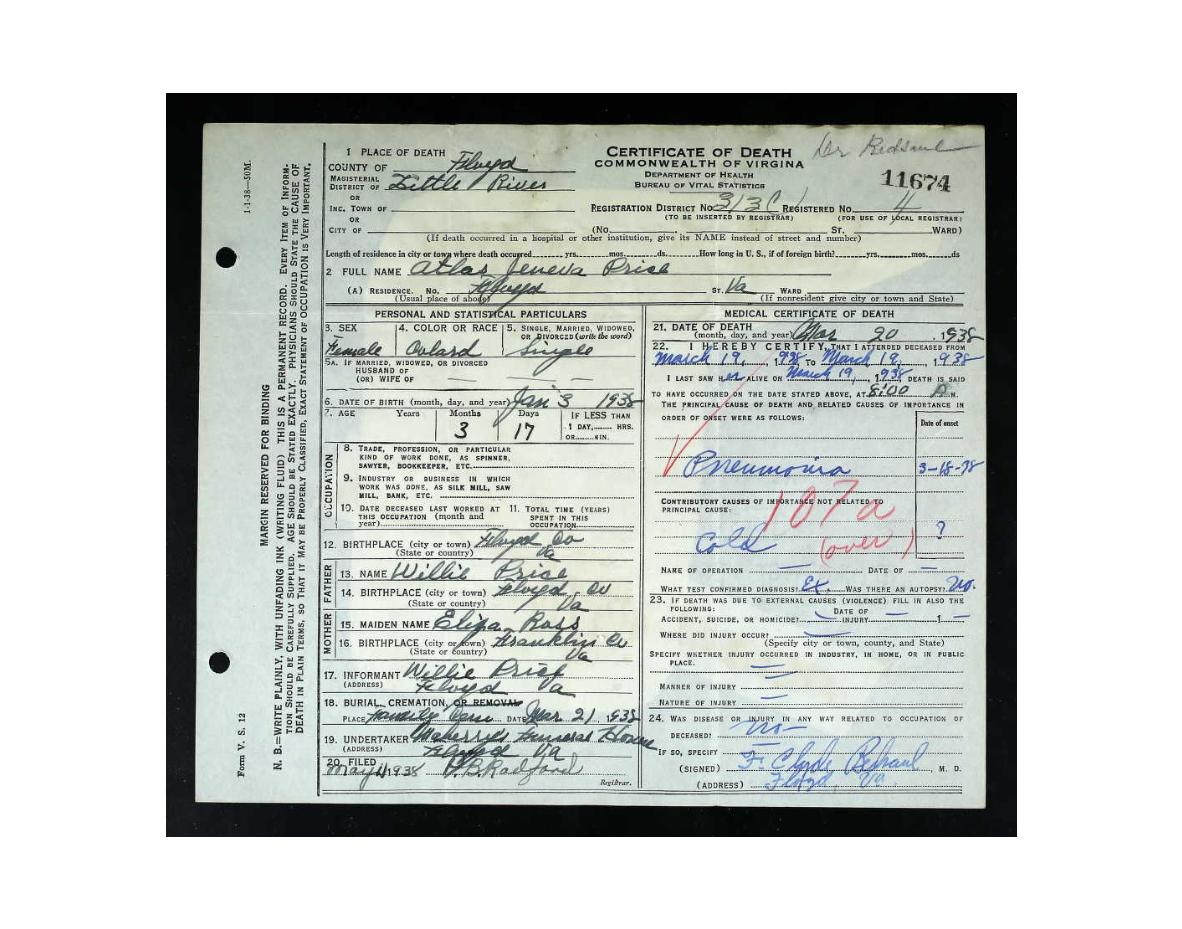 1-1-38—50M.
MARGIN RESERVED FOR BINDING
N. B.—WRITE PLAINLY, WITH UNFADING INK (WRITING FLUID) THIS IS A PERMANENT RECORD. EVERY ITEM OF INFORM-
TION SHOULD BE CAREFULLY SUPPLIED. AGE SHOULD BE STATED EXACTLY. PHYSICIANS SHOULD STATE THE CAUSE OF
DEATH IN PLAIN TERMS, SO THAT IT MAY BE PROPERLY CLASSIFIED. EXACT STATEMENT OF OCCUPATION IS VERY IMPORTANT.
Form V. S. 12
1 PLACE OF DEATH
COUNTY OF Floyd
MAGISTERIAL DISTRICT OF Little River
OR
INC. TOWN OF
OR
CITY OF (No. St. WARD)
CERTIFICATE OF DEATH
COMMONWEALTH OF VIRGINIA
DEPARTMENT OF HEALTH
BUREAU OF VITAL STATISTICS
Dr
11674
REGISTRATION DISTRICT No. 313C REGISTERED No. 4
(TO BE INSERTED BY REGISTRAR) (FOR USE OF LOCAL REGISTRAR)
(If death occurred in a hospital or other institution, give its NAME instead of street and number)
Length of residence in city or town where death occurred yrs. mos. ds. How long in U. S., if of foreign birth? yrs. mos. ds
2 FULL NAME Atlas Jeneva Price
(A) RESIDENCE. No. Floyd ST. Va WARD
(Usual place of abode) (If nonresident give city or town and State)
PERSONAL AND STATISTICAL PARTICULARS
3. SEX 4. COLOR OR RACE 5. SINGLE, MARRIED, WIDOWED, OR DIVORCED (write the word)
Female Colard Single
5A. IF MARRIED, WIDOWED, OR DIVORCED
HUSBAND OF
(OR) WIFE OF — — —
6. DATE OF BIRTH (month, day, and year) Jan 3 1938
7. AGE Years Months Days IF LESS THAN
3 17 1 DAY, HRS.
OR MIN.
OCCUPATION
8. TRADE, PROFESSION, OR PARTICULAR
KIND OF WORK DONE, AS SPINNER,
SAWYER, BOOKKEEPER, ETC.
9. INDUSTRY OR BUSINESS IN WHICH
WORK WAS DONE, AS SILK MILL, SAW
MILL, BANK, ETC.
10. DATE DECEASED LAST WORKED AT THIS OCCUPATION (month and year)
11. TOTAL TIME (YEARS) SPENT IN THIS OCCUPATION
12. BIRTHPLACE (city or town) Floyd Co
(State or country) Va
FATHER
13. NAME Willie Price
14. BIRTHPLACE (city or town) Floyd Co
(State or country) Va
MOTHER
15. MAIDEN NAME Eliza Ross
16. BIRTHPLACE (city or town) Franklin Co
(State or country) Va
17. INFORMANT Willie Price
(ADDRESS) Floyd Va
18. BURIAL, CREMATION, OR REMOVAL
PLACE Family Cem DATE Mar 21, 1938
19. UNDERTAKER Funeral Home
(ADDRESS) Floyd Va
20. FILED
May 4 1938 Radford
Registrar.
MEDICAL CERTIFICATE OF DEATH
21. DATE OF DEATH
(month, day, and year) Mar 20, 1938
22. I HEREBY CERTIFY, THAT I ATTENDED DECEASED FROM
March 19, 1938 TO March 19, 1938
I LAST SAW HER ALIVE ON March 19, 1938 DEATH IS SAID
TO HAVE OCCURRED ON THE DATE STATED ABOVE, AT 8:00 A M.
THE PRINCIPAL CAUSE OF DEATH AND RELATED CAUSES OF IMPORTANCE IN
ORDER OF ONSET WERE AS FOLLOWS:
Date of onset
Pneumonia 3-18-38
CONTRIBUTORY CAUSES OF IMPORTANCE NOT RELATED TO
PRINCIPAL CAUSE:
107a
Cold (over) ?
NAME OF OPERATION — DATE OF —
WHAT TEST CONFIRMED DIAGNOSIS? Ex. WAS THERE AN AUTOPSY? No.
23. IF DEATH WAS DUE TO EXTERNAL CAUSES (VIOLENCE) FILL IN ALSO THE
FOLLOWING:
DATE OF —
ACCIDENT, SUICIDE, OR HOMICIDE? INJURY 1 —
WHERE DID INJURY OCCUR? —
(Specify city or town, county, and State)
SPECIFY WHETHER INJURY OCCURRED IN INDUSTRY, IN HOME, OR IN PUBLIC
PLACE. —
MANNER OF INJURY —
NATURE OF INJURY —
24. WAS DISEASE OR INJURY IN ANY WAY RELATED TO OCCUPATION OF
DECEASED? No—
IF SO, SPECIFY —
(SIGNED) F. Clyde Bedsaul, M. D.
(ADDRESS) Floyd, Va.